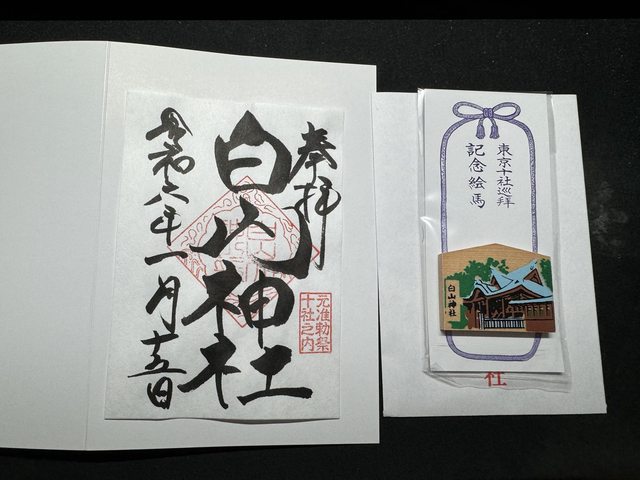 奉拝
白山神社
元准勅祭
十社之内
令和六年一月十五日
東京十社巡拝
記念絵馬
白山神社
社